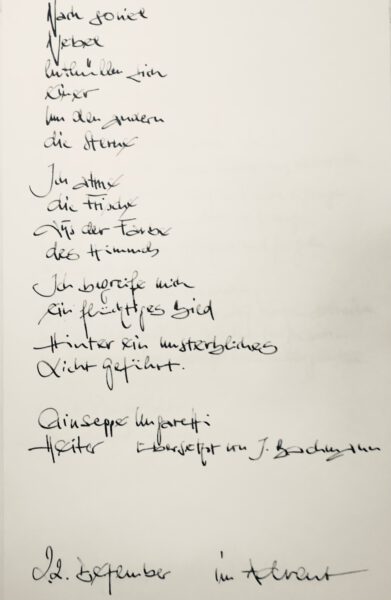 Nach soviel
Nebel
Enthüllen sich
einer
um den andern
die Sterne
Ich atme
die Frische
Aus der Farbe
des Himmels
Ich begreife mich
ein flüchtiges Bild
Hinter ein unsterbliches
Licht geführt.
Giuseppe Ungaretti
Heiter Übersetzt von I. Bachmann
22. Dezember im Advent